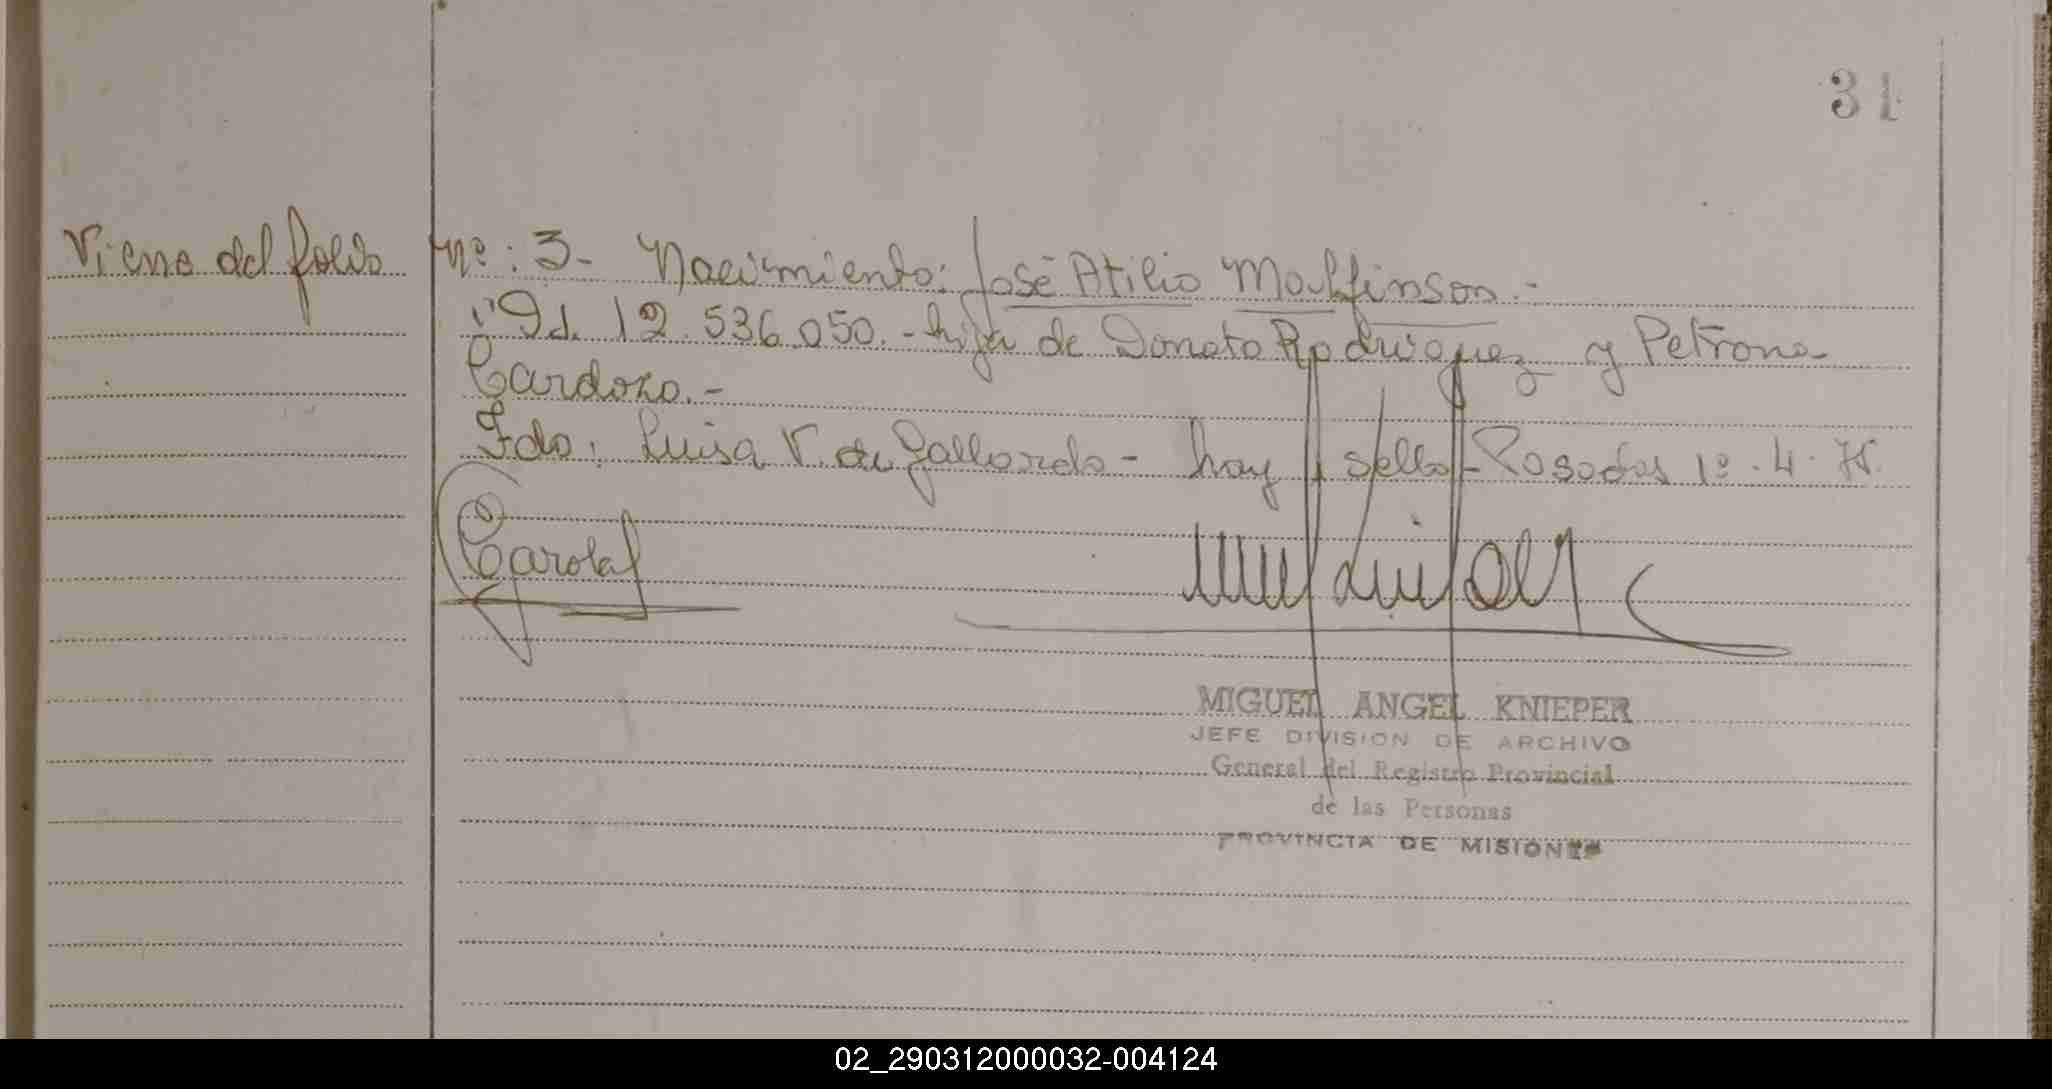 31
Viene del folio nº: 3- Nacimiento: José Atilio Malfinson.-
"Id. 12.536.050.- hija de Donato Rodriguez y Petrona
Cardozo.-
Fdo: Luisa V. de Gallardo - hay 1 sello - Posadas 1º.4.75.
MIGUEL ANGEL KNIEPER
JEFE DIVISION DE ARCHIVO
General del Registro Provincial
de las Personas
PROVINCIA DE MISIONES
02_290312000032-004124